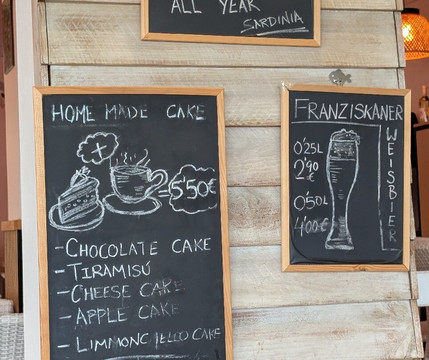 ALL YEAR
SARDINIA
HOME MADE CAKE
+
= 5'50€
-CHOCOLATE CAKE
-TIRAMISÚ
-CHEESE CAKE
-APPLE CAKE
- CAKE
FRANZISKANER
0'25L
2'90
€
0'50L
4'00€
WEISBIER